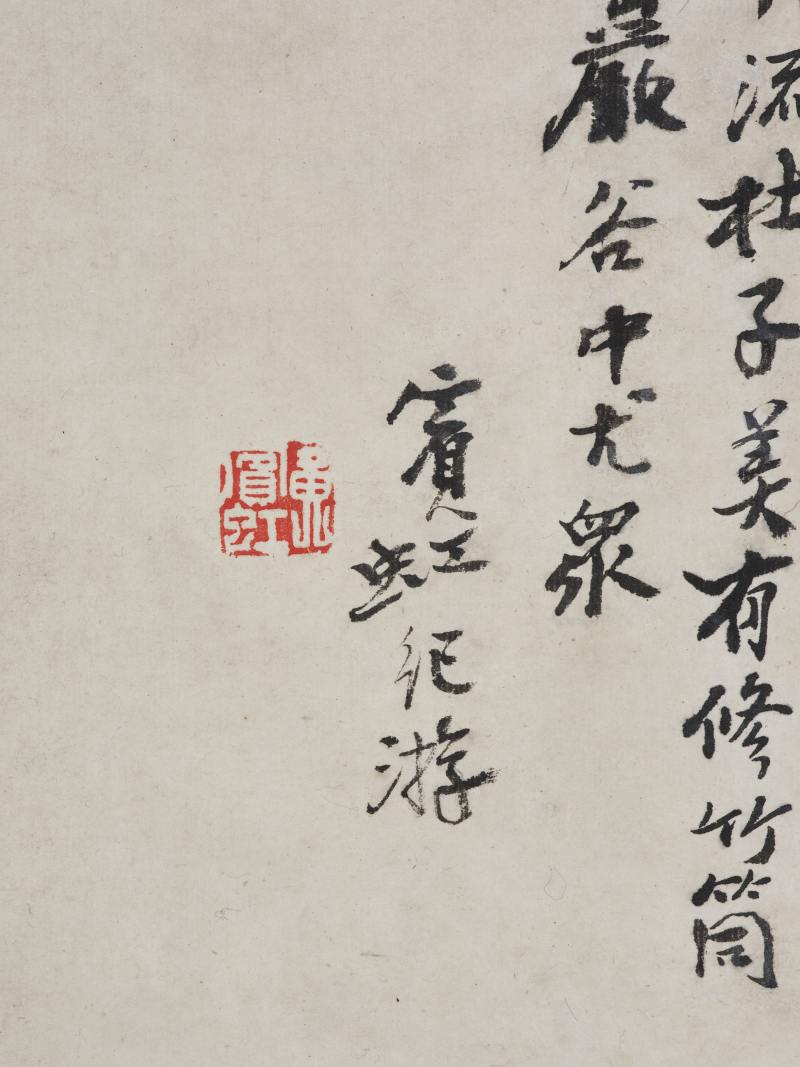 流杜子美有修竹筒
巖谷中尤眾
賓虹紀游
黃山
賓虹